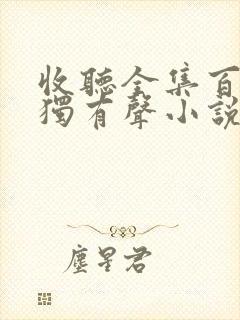 收聽全集百
獨有聲小說
塵星君